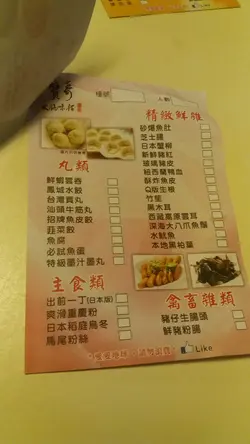 檯號
人數
火鍋味榜
精緻鮮雜
砂爆魚肚
芝士腸
日本蟹柳
新鮮豬紅
玻璃豬皮
紐西蘭鴨血
酥炸魚皮
Q版生根
竹笙
黑木耳
西藏高原雲耳
深海大八爪魚鬚
水魷魚
本地黑柏葉
丸類
鮮蝦雲吞
鳳城水餃
台灣貢丸
汕頭牛筋丸
招牌魚皮餃
韭菜餃
魚腐
必試魚蛋
特級墨汁墨丸
主食類
出前一丁(日本版)
爽滑重慶粉
日本稻庭烏冬
馬尾粉絲
禽畜雜類
豬仔生腸頭
鮮豬粉腸
Like